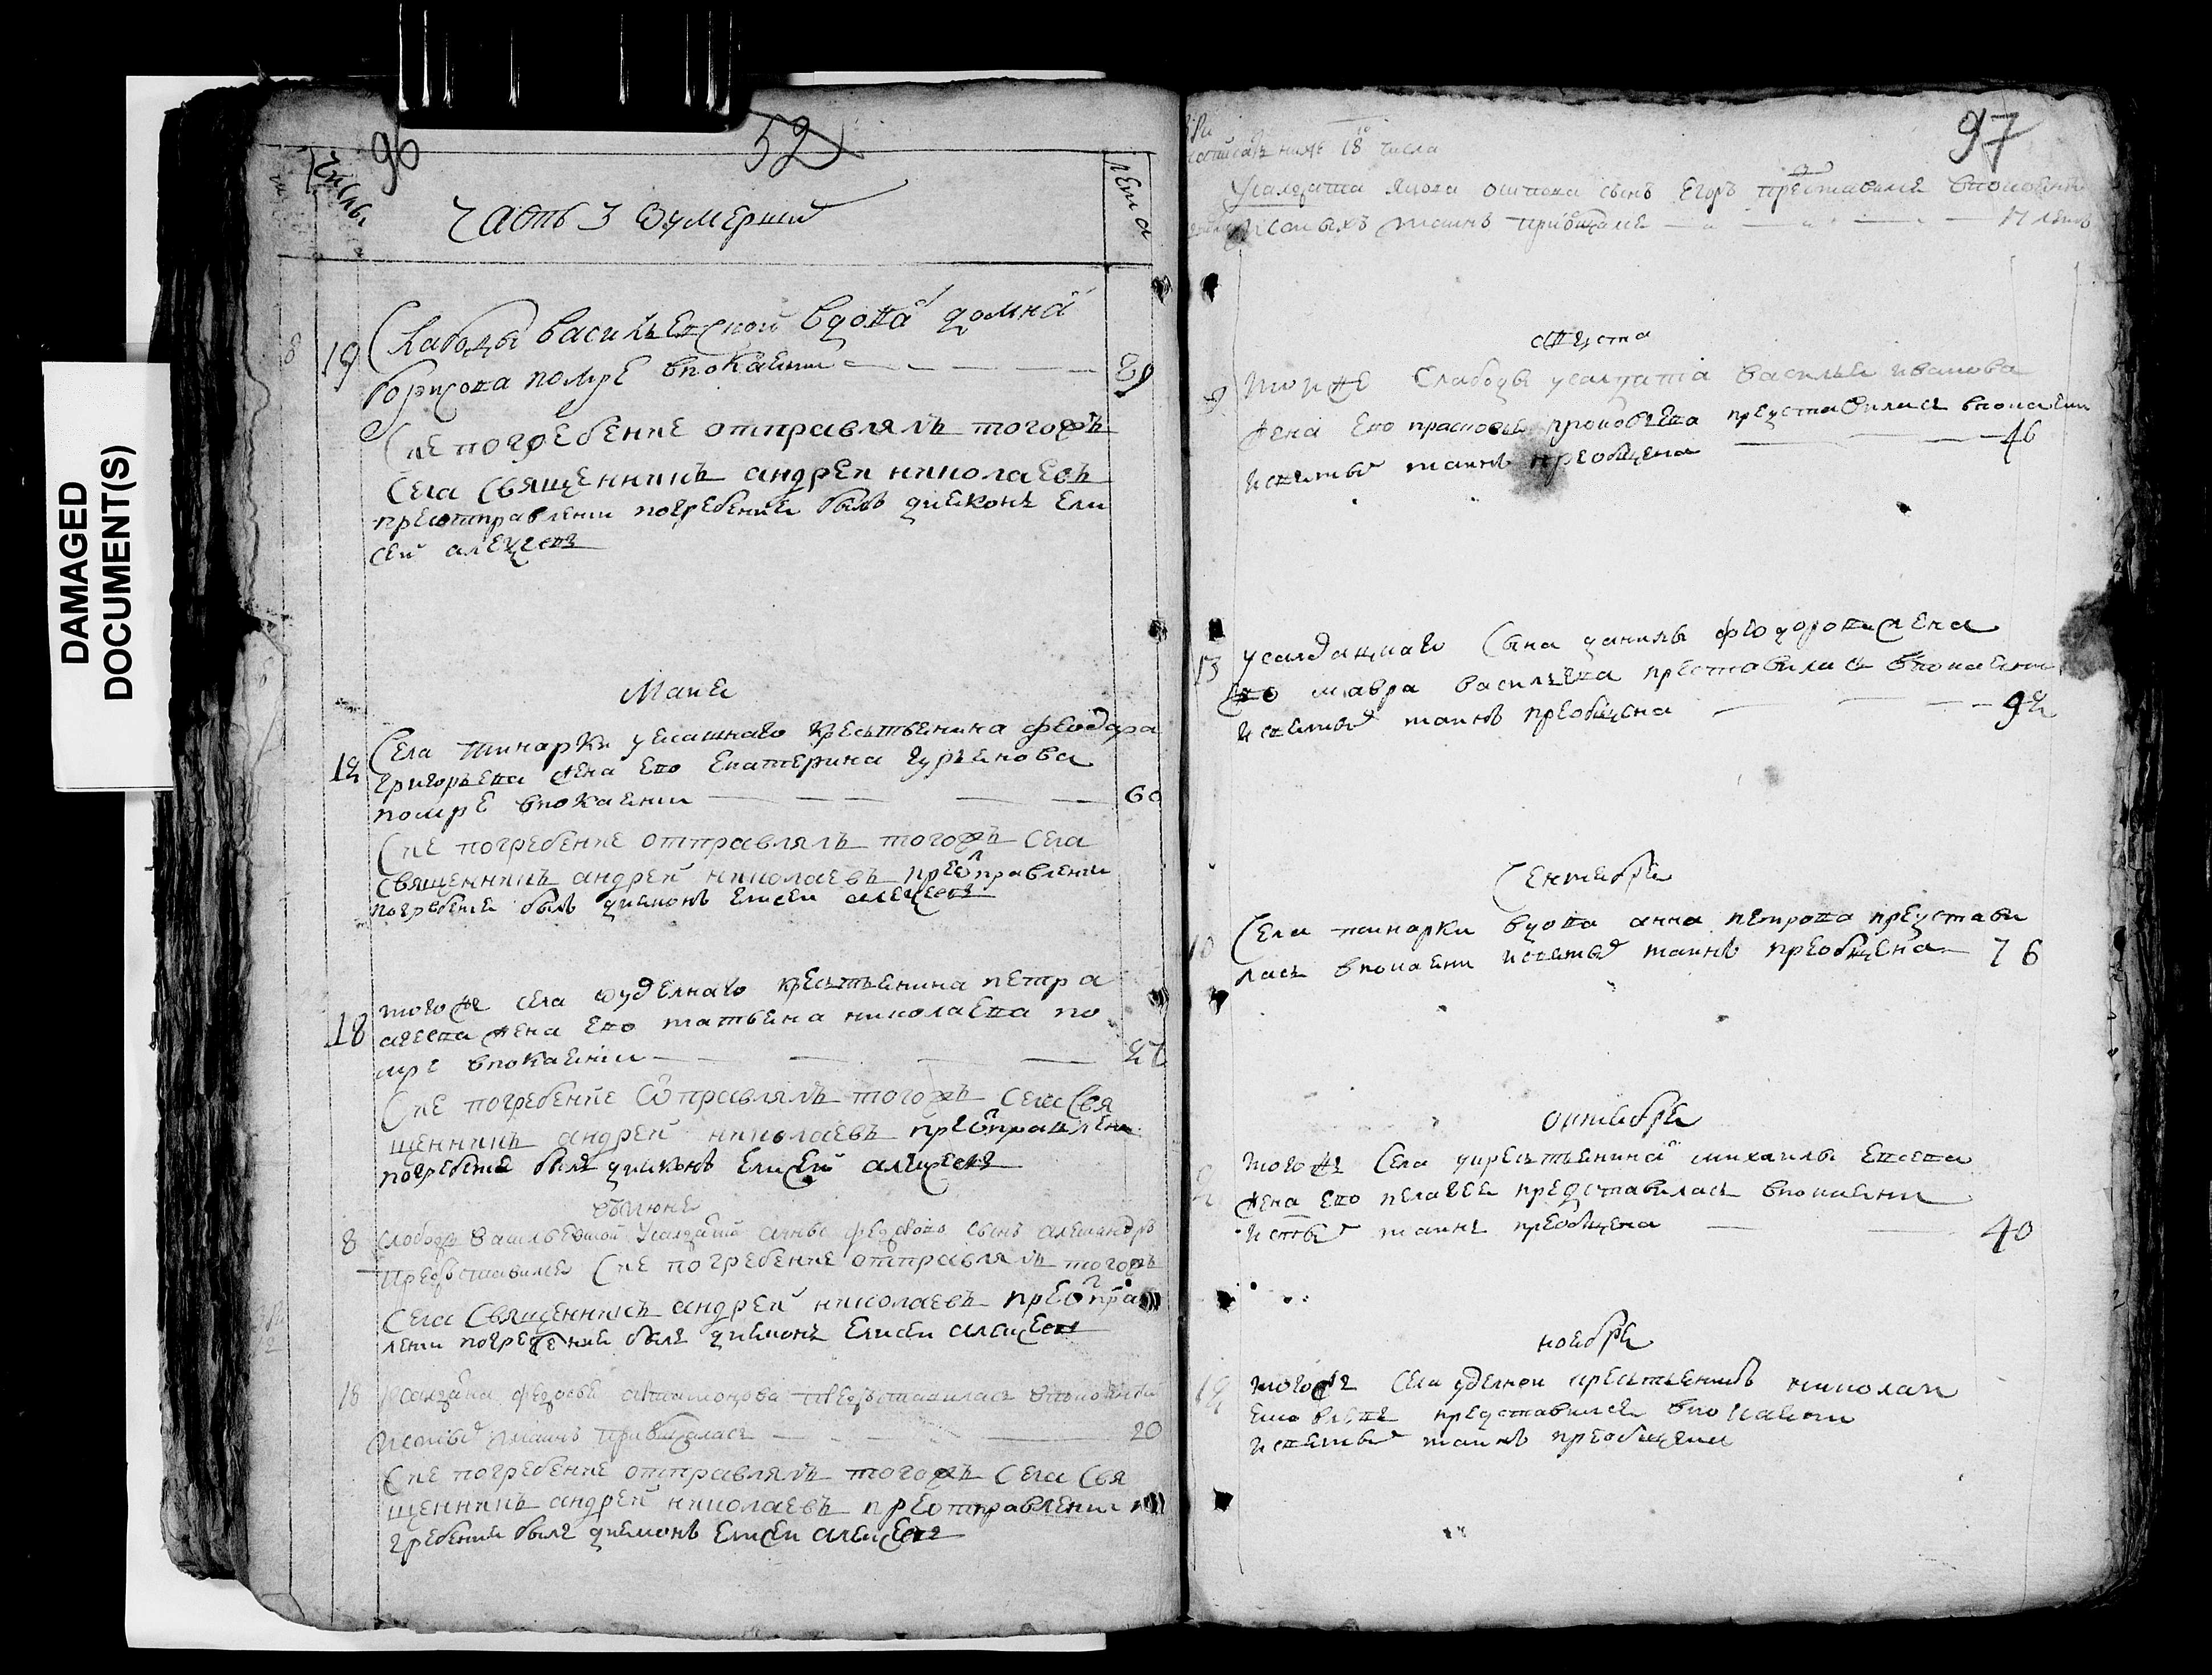 DAMAGED
DOCUMENT(S)
96
52
Числы
лета
часть 3 о умерших
19
Слабоды васильевской вдова домна
борисова помре впокаянии
89
Сие погребение отправлялъ тогожъ
Села Священникъ андреи николаевъ
преотправлении погребения былъ диаконъ Ели
сеи алеѯеевъ
Маия
12
Села шинарки ясашнаго крестьянина феодора
григорьева жена ево Екатерина гурьянова
помре впокаянии
60
Сие погребение отправлялъ тогожъ Села
Священникъ андреи николаевъ преоправлении
погребения былъ диаконъ Елисеи алеѯеевъ
18
тогожъ села удѣлнаго крестьянина петра
жена ево татьяна николаева по
мре впокаянии
27
Сие погребение оправлялъ тогожъ Села Свя
щенникъ андреи николаевъ преоправлении
погребения былъ диаконъ Елисеи алеѯеевъ
июня
8
слободы Василевской Усалдата сынъ александръ
Представился Сие погребение отправлялъ тогожъ
Села Священникъ андреи николаевъ преоправ
лении погребения былъ диаконъ Елисеи алеѯеевъ
18
предъставилась
таинъ приобщалась
20
Сие погребение отправлялъ тогожъ Села Свя
щенникъ андреи николаевъ преотправлении по
гребения былъ диаконъ Елисеи алеѯеевъ
97
ниже 18 числа
Усалдата Якова осипова сынъ Егоръ преставился впокоянии
таинъ приобщался 17 летъ
августа
9
тоиже Слабоды усалдата василья иванова
жена ево прасковья прокофьева представилась впокаянии
исвятыхъ таинъ преобщена
46
13
усалдацкаго Сына данилы феодорова жена
ево мавра васильева преставилась впокаянии
исвятыхъ таинъ преобщена
92
Сентября
10
Села шинарки вдова анна петрова представи
лась впокаяни исвятыхъ таинъ преобщена
76
октября
2
тогожъ Села укрестьянина михаилы Евсева
жена ево пелагея представилась впокаянии
исвятыхъ таинъ преобщена
40
ноября
12
тогожъ Села уделнои крестьянинъ николаи
представился впокаянии
исвятыхъ таинъ преобщенъ